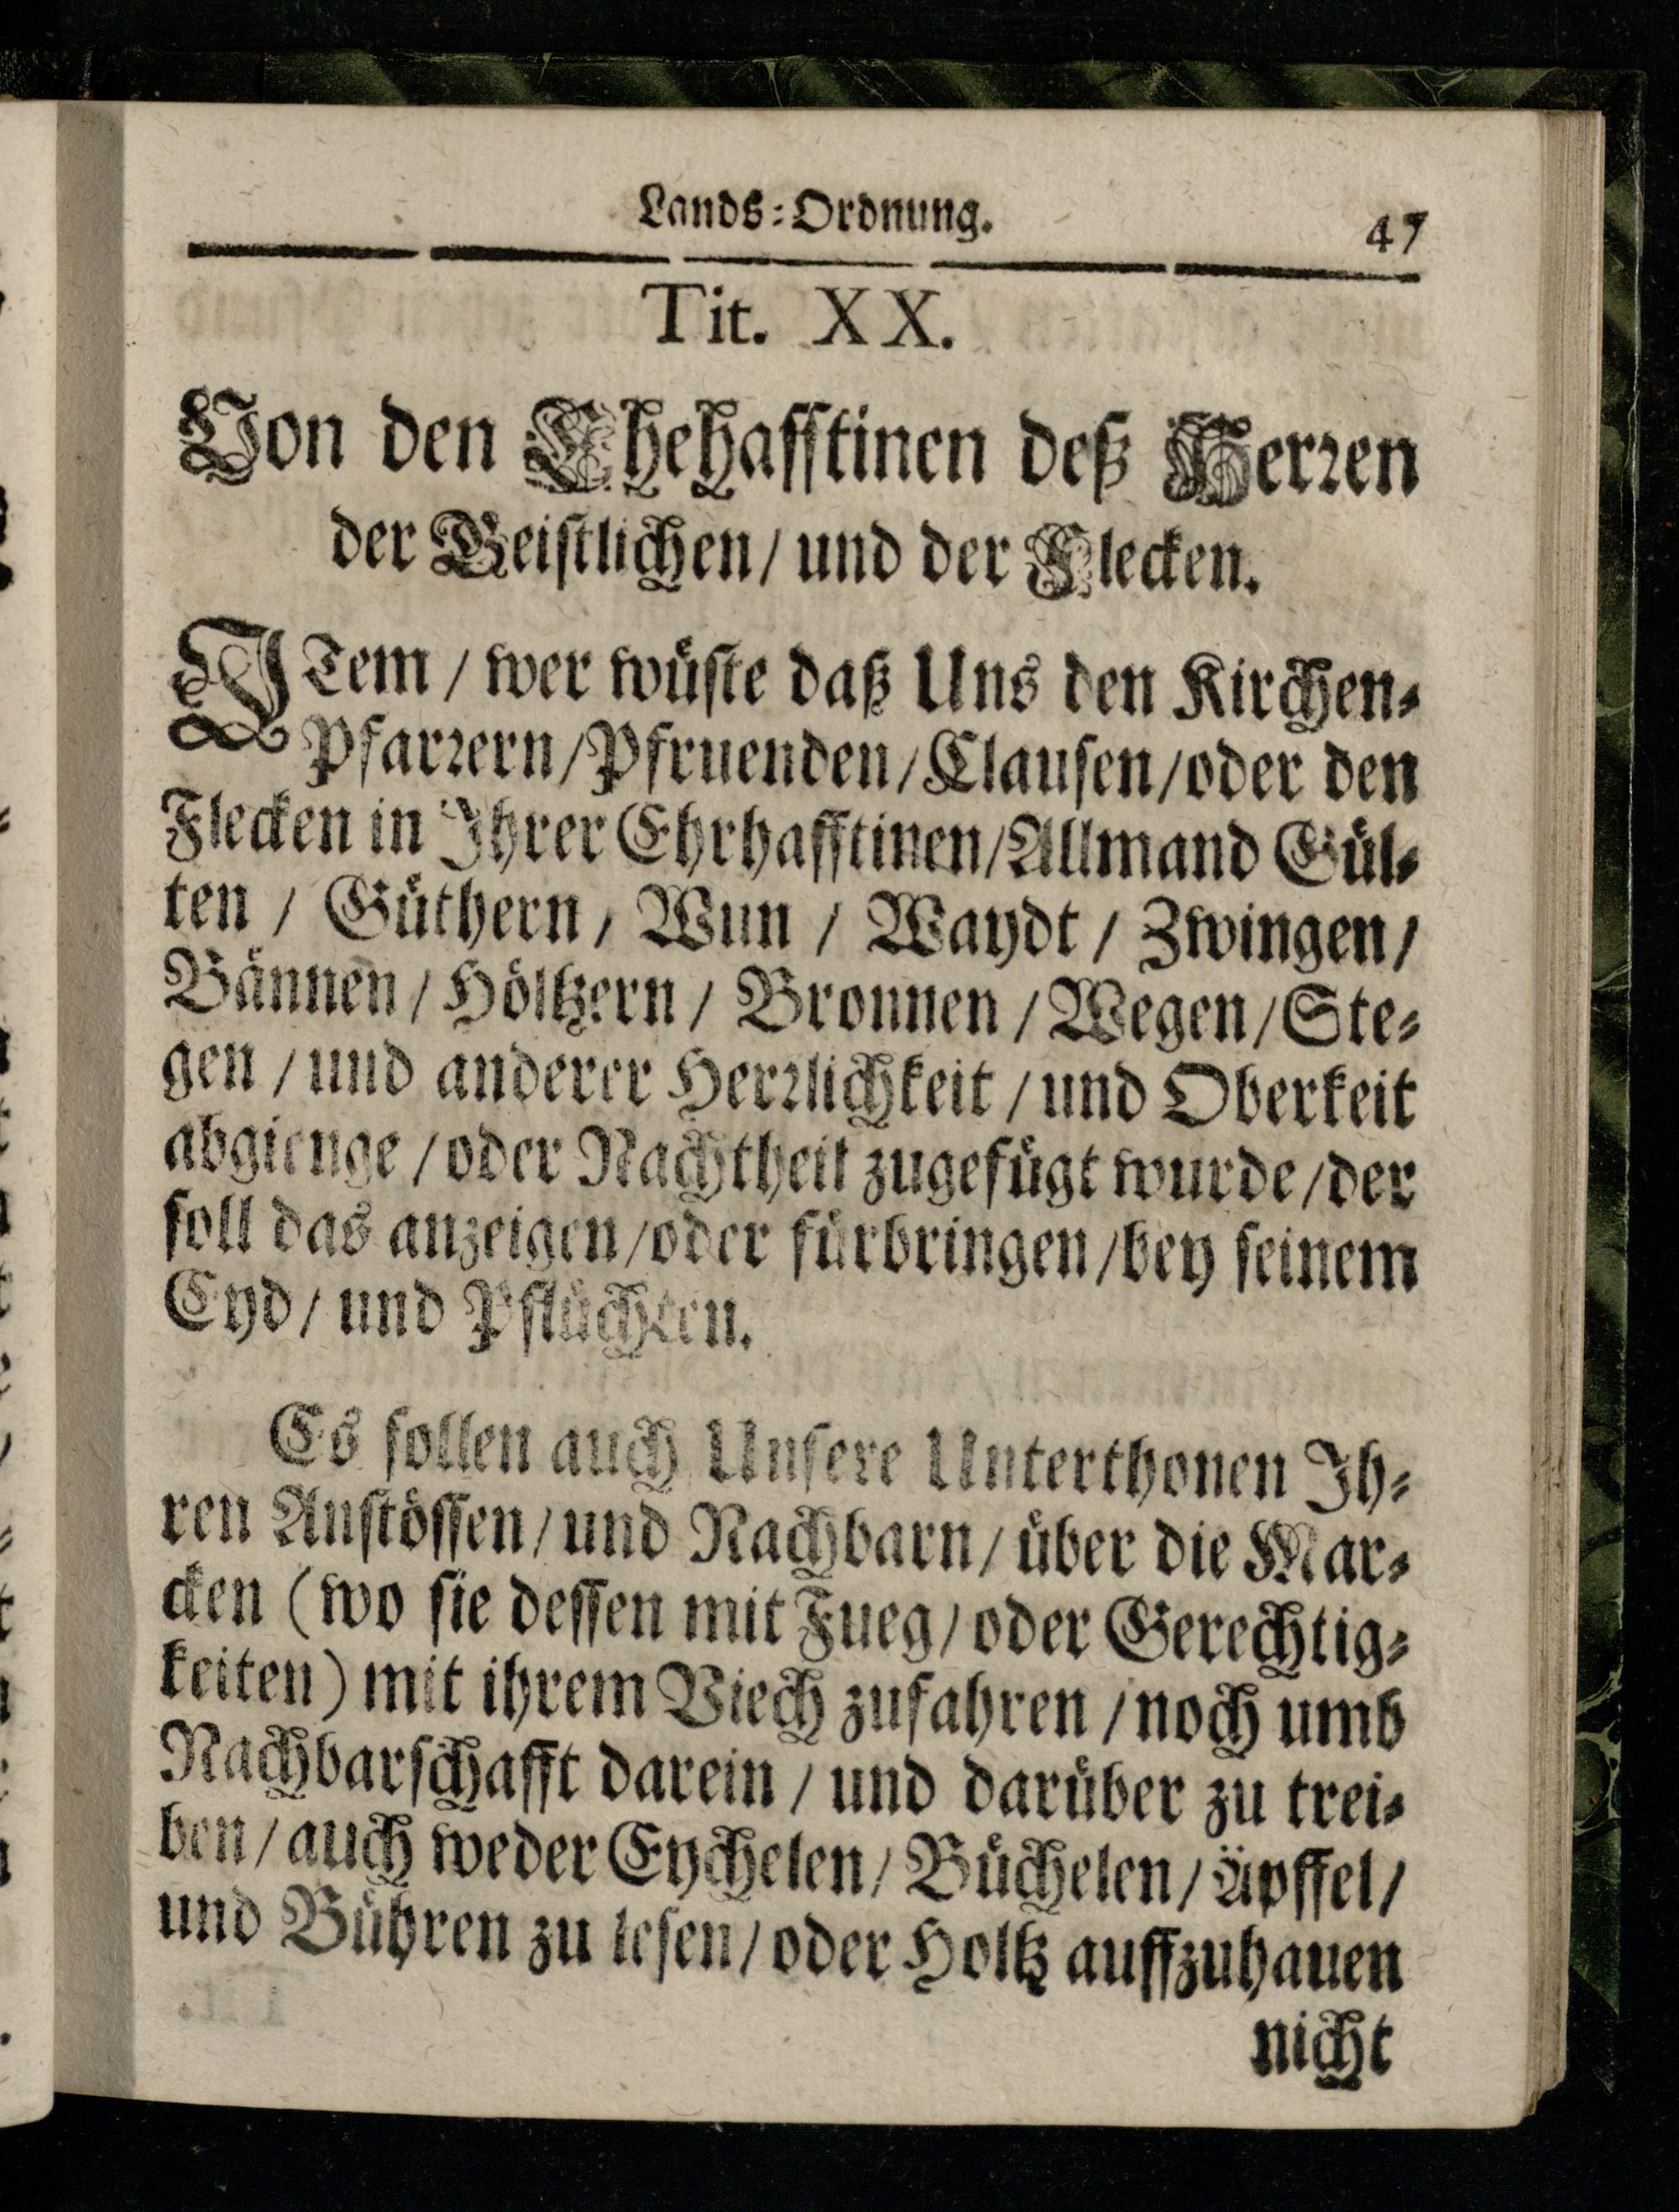 Lands-Ordnung. 47
Tit. XX.
Von den Ehehafftinen deß Herren
der Geistlichen/ und der Flecken.
ITem / wer wüste daß Uns den Kirchen-
Pfarrern/Pfruenden/Clausen/oder den
Flecken in Ihrer Ehrhafftinen/Allmand Gül-
ten / Güthern / Wun / Waydt / Zwingen/
Bännen / Höltzern / Bronnen / Wegen/Ste-
gen / und anderer Herrlichkeit / und Oberkeit
abgienge / oder Nachtheil zugefügt wurde/der
soll das anzeigen/oder fürbringen/bey seinem
Eyd/ und Pflüchten.
Es sollen auch Unsere Unterthonen Ih-
ren Anstössen/ und Nachbarn/ über die Mar-
cken (wo sie dessen mit Fueg/ oder Gerechtig-
keiten) mit ihrem Viech zufahren / noch umb
Nachbarschafft darein / und darüber zu trei-
ben/ auch weder Eychelen/ Büchelen/ Äpffel/
und Bühren zu lesen/ oder Holtz auffzuhauen
nicht